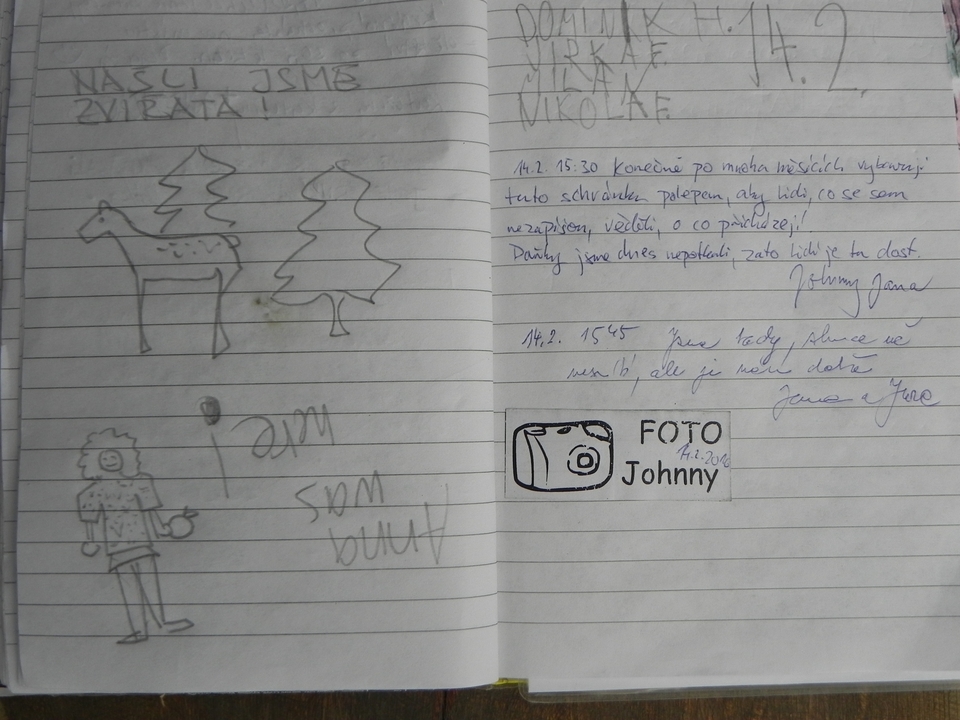 NAŠLI JSME
ZVIŘATA!
Anna
was
here!
DOMINIK H. 14.2.
JIRKA F.
MILAN
NIKOLA F.
14.2. 15:30 Konečně po mnoha měsících vybavuji
tuto schránku polepem, aby lidi, co se sem
nezapisou, věděli, o co přicházejí!
Daňky jsme dnes nepotkali, zato lidí je tu dost.
Johnny Jana
14.2. 15 45 Jsme tady, slunce už
nesvítí, ale je nám dobře
Jana a
FOTO
14.2.2016
Johnny